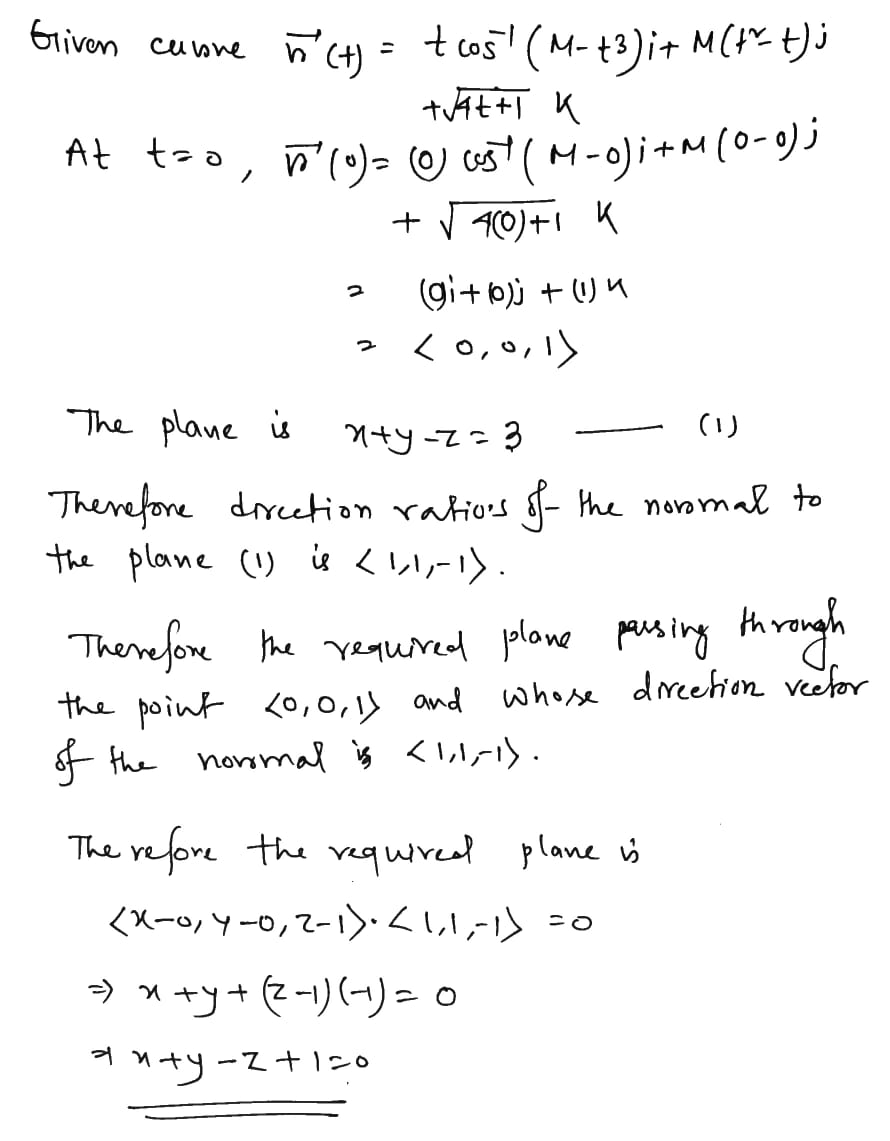 Given curve r⃗(t) = t cos⁻¹(M-t3)i + M(t²-t)j
+√4t+1 K
At t=0, r⃗(0)= (0) cos⁻¹(M-0)i+M(0-0)j
+ √4(0)+1 K
= (0)i+(0)j + (1)k
= <0,0,1>
The plane is x+y-z=3 —— (1)
Therefore direction ratio's of the normal to
the plane (1) is <1,1,-1>.
Therefore the required plane passing through
the point <0,0,1> and whose direction vector
of the normal is <1,1,-1>.
Therefore the required plane is
<x-0, y-0, z-1>·<1,1,-1> =0
⇒ x+y+(z-1)(-1)= 0
⇒ x+y-z+1=0